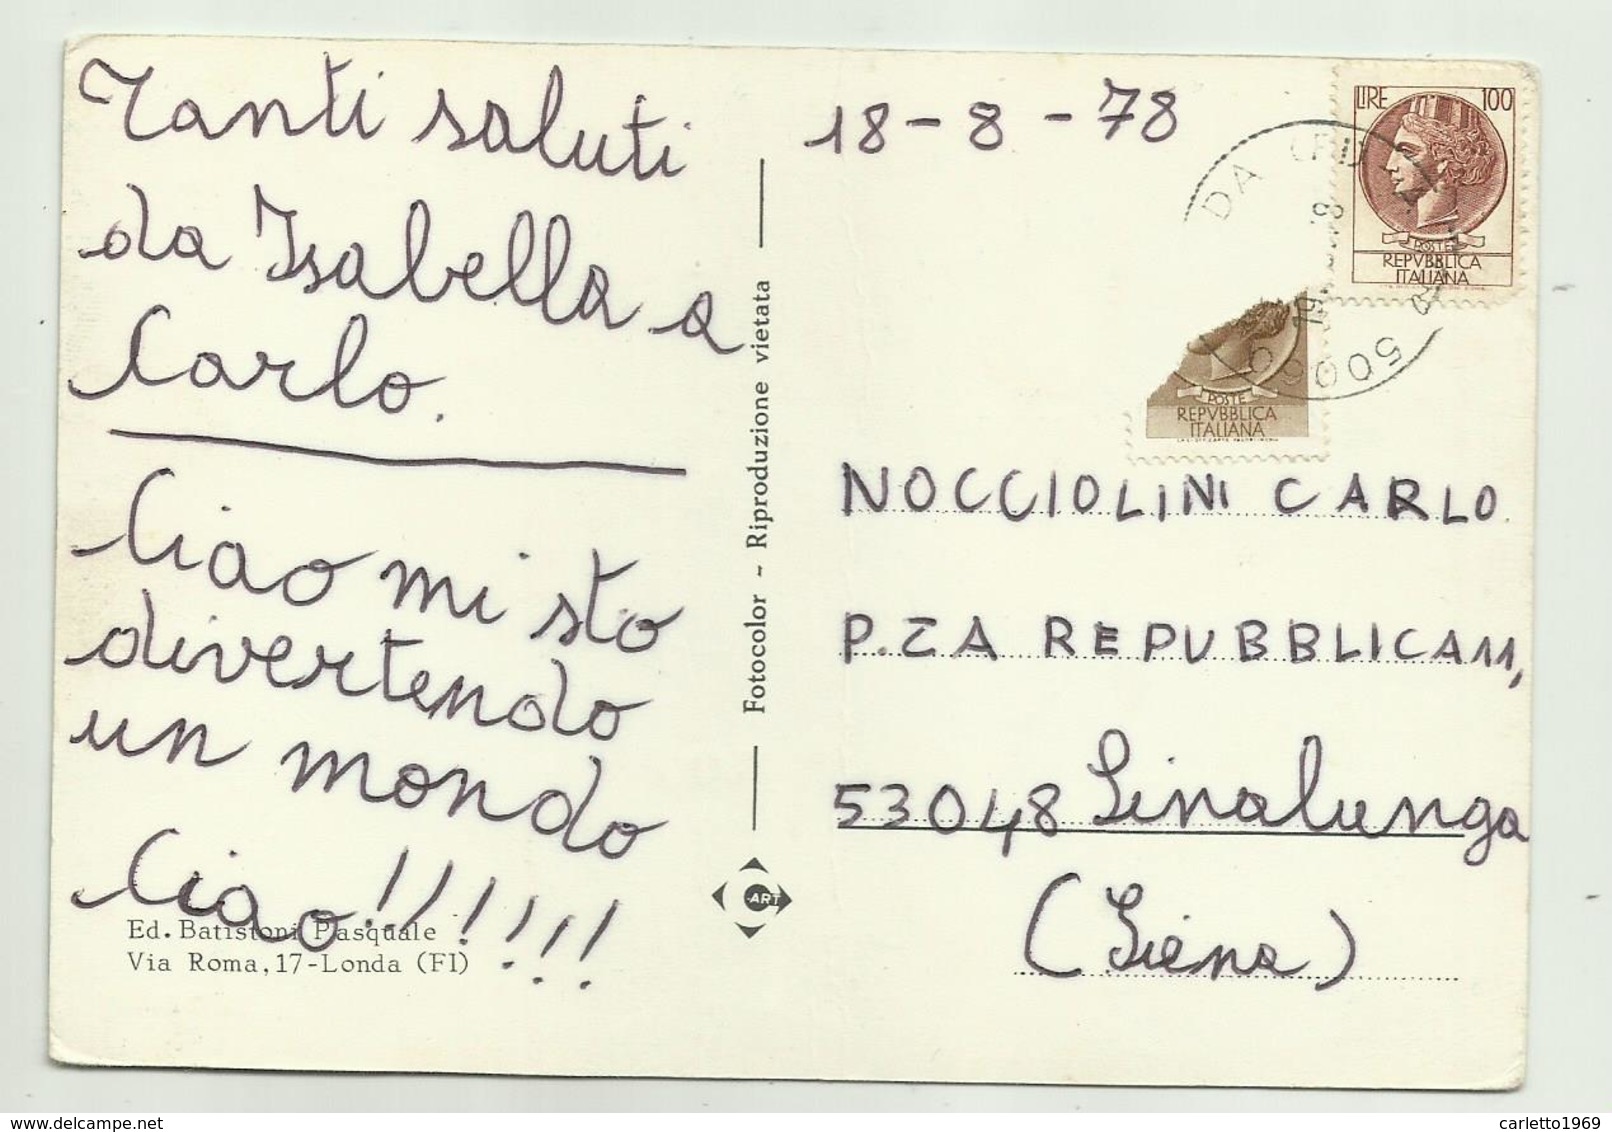 Tanti saluti
da Isabella a
Carlo.
Ciao mi sto
divertendo
un mondo
Ciao!!!!!!!
Ed. Batistoni Pasquale
Via Roma, 17-Londa (FI)
Fotocolor - Riproduzione vietata
ART
18-8-78
LIRE 100
POSTE
REPVBBLICA
ITALIANA
POSTE
REPVBBLICA
ITALIANA
NOCCIOLINI CARLO
P.ZA REPUBBLICA 11,
53048 Sinalunga
(Siena)
carletto1969